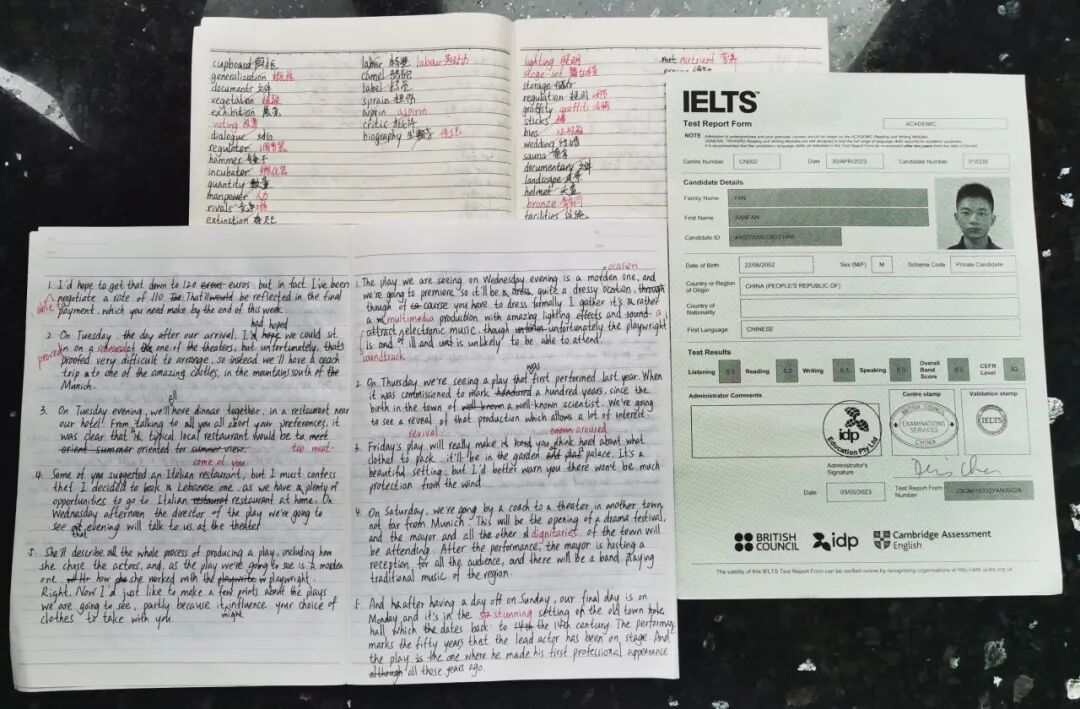 cupboard 橱柜
generalization 概括
documents 文件
vegetation 植被
exhibition 展览
voting 投票
dialogue 对话
regulator 调节器
hammer 锤子
incubator 孵化器
quantity 数量
manpower 人力
rivals 竞争
extinction
labour 劳动力
camel 骆驼
label 标签
sprain 扭伤
asprin aspirin
critic 批评
biography 传记
lighting 照明
stage-set 舞台布景
storage 储存
regulation 规则
graffity graffiti 涂鸦
sticks
bias
wedding 婚礼
sauna 桑拿
documentary 文件
landscape 风景
helmet 头盔
bronze 青铜
facilities 设施
nutrient 营养
IELTS™
Test Report Form
ACADEMIC
NOTE
Centre Number CN002 Date 20/APR/2023 Candidate Number 018335
Candidate Details
Family Name YAN
First Name
Candidate ID
Date of Birth 22/06/2002 Sex (M/F) M Scheme Code Private Candidate
Country or Region of Origin CHINA (PEOPLE'S REPUBLIC OF)
Country of Nationality
First Language CHINESE
Test Results
Listening Reading Writing Speaking Overall Band Score CEFR Level
Administrator Comments
Centre stamp
Validation stamp
idp
Education Pty Ltd
BRITISH COUNCIL
EXAMINATIONS SERVICES
CHINA
IELTS
Administrator's Signature
Date 03/05/2023 Test Report Form Number
BRITISH COUNCIL
idp
Cambridge Assessment English
The validity of this IELTS Test Report Form can be verified online by recognising organisations at http://ielts.ucles.org.uk
1. I'd hope to get that down to 120 euros, but in fact I've been
able to negotiate a rate of 110. That'll would be reflected in the final
payment, which you need make by the end of this week.
had hoped
2. On Tuesday, the day after our arrival, I'd hope we could sit
in on a rehearsal at one of the theaters, but unfortunately, that's
proved
proofed very difficult to arrange, so instead we'll have a coach
trip to one of the amazing castles, in the mountains south of the
Munich.
all
3. On Tuesday evening, we'll have dinnar together, in a restaurant near
our hotel! From talking to you all about your preferences, it
was clear that a typical local restaurant would be to meet
orient summer oriented for summer view. too meat-
some of you
4. Some of you suggested an Italian restaurant, but I must confess
that I decided to book a Lebanese one, as we have a plenty of
opportunities to go to Italian restaurant restaurant at home. On
Wednesday afternoon the director of the play we're going to
see evening will talk to us at the theater
that
5. She'll describe the whole process of producing a play, including how
she chose the actors, and, as the play we're going to see is a morden
one. how she worked with the playwright.
Right. Now I'd just like to make a few points about the plays
we are going to see, partly because it influence your choice of
might
clothes to take with you.
ocasion
1. The play we are seeing on Wednesday evening is a morden one, and
we're going to premiere, so it'll be a dress, quite a dressy ocation, through
though of course you have to dress formally. I gather it's a rather
a multimedia production with amazing lighting effects and sound- a
attract electronic music, though unfortunately the playwright
is and of ill and is unlikely to be able to attend.
soundtrack
was
2. On Thursday, we're seeing a play that first performed last year. When
it was commissioned to mark a hundred years, since the
birth in the town of well-known a well-known scientist. We're going
to see a reveal of that production which allows a lot of interest.
revival aroused
3. Friday's play will really make you think hard about what
clothed to pack. it'll be in the garden palace. It's a
beautiful setting, but I'd better warn you there won't be much
protection from the wind
4. On Saturday, we're going by a coach to a theater in another town,
not far from Munich. This will be the opening of a drama festival,
and the mayor and all the other dignitaries of the town will
be attending. After the performance, the mayor is hosting a
reception, for all the audience, and there will be a band playing
traditional music of the region.
5. And after having a day off on Sunday, our final day is on
Monday and it's in the stunning setting of the old town hole
hall, which the dates back to 14th the 14th century. The performance
marks the fifty years that the lead actor has been on stage. And
the play is the one where he made his first professional appearance
although all those years ago.